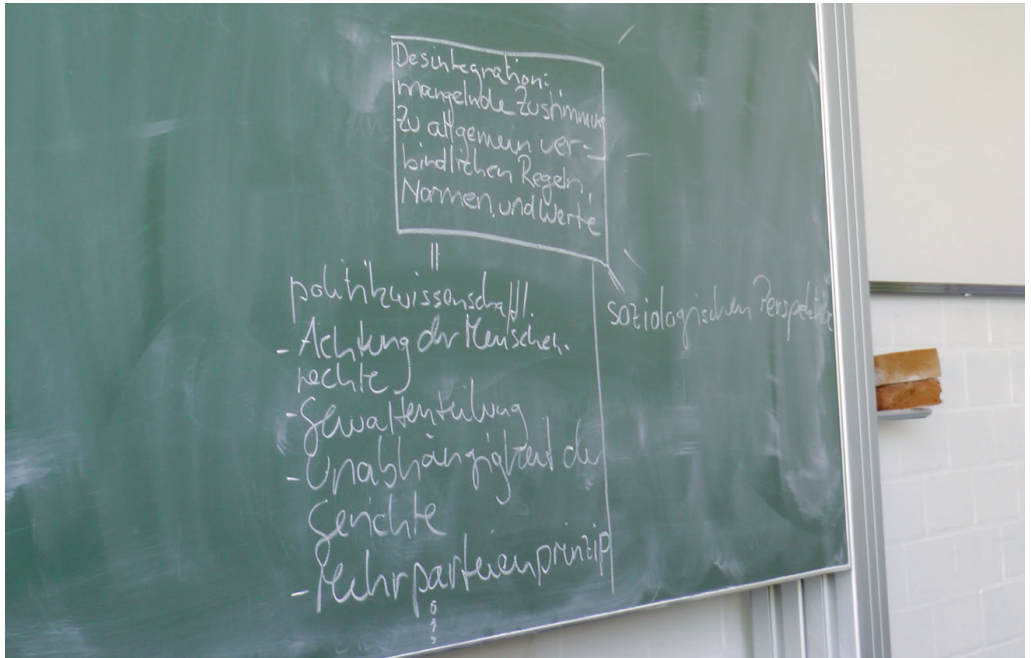 Desintegration:
mangelnde Zustimmung
zu allgemein ver-
bindlichen Regeln,
Normen, und Werte
politikwissenschaftl.
- Achtung der Menschen-
rechte
- Gewaltenteilung
- Unabhängigkeit der
Gerichte
- Mehrparteienprinzip
soziologischen Perspektive